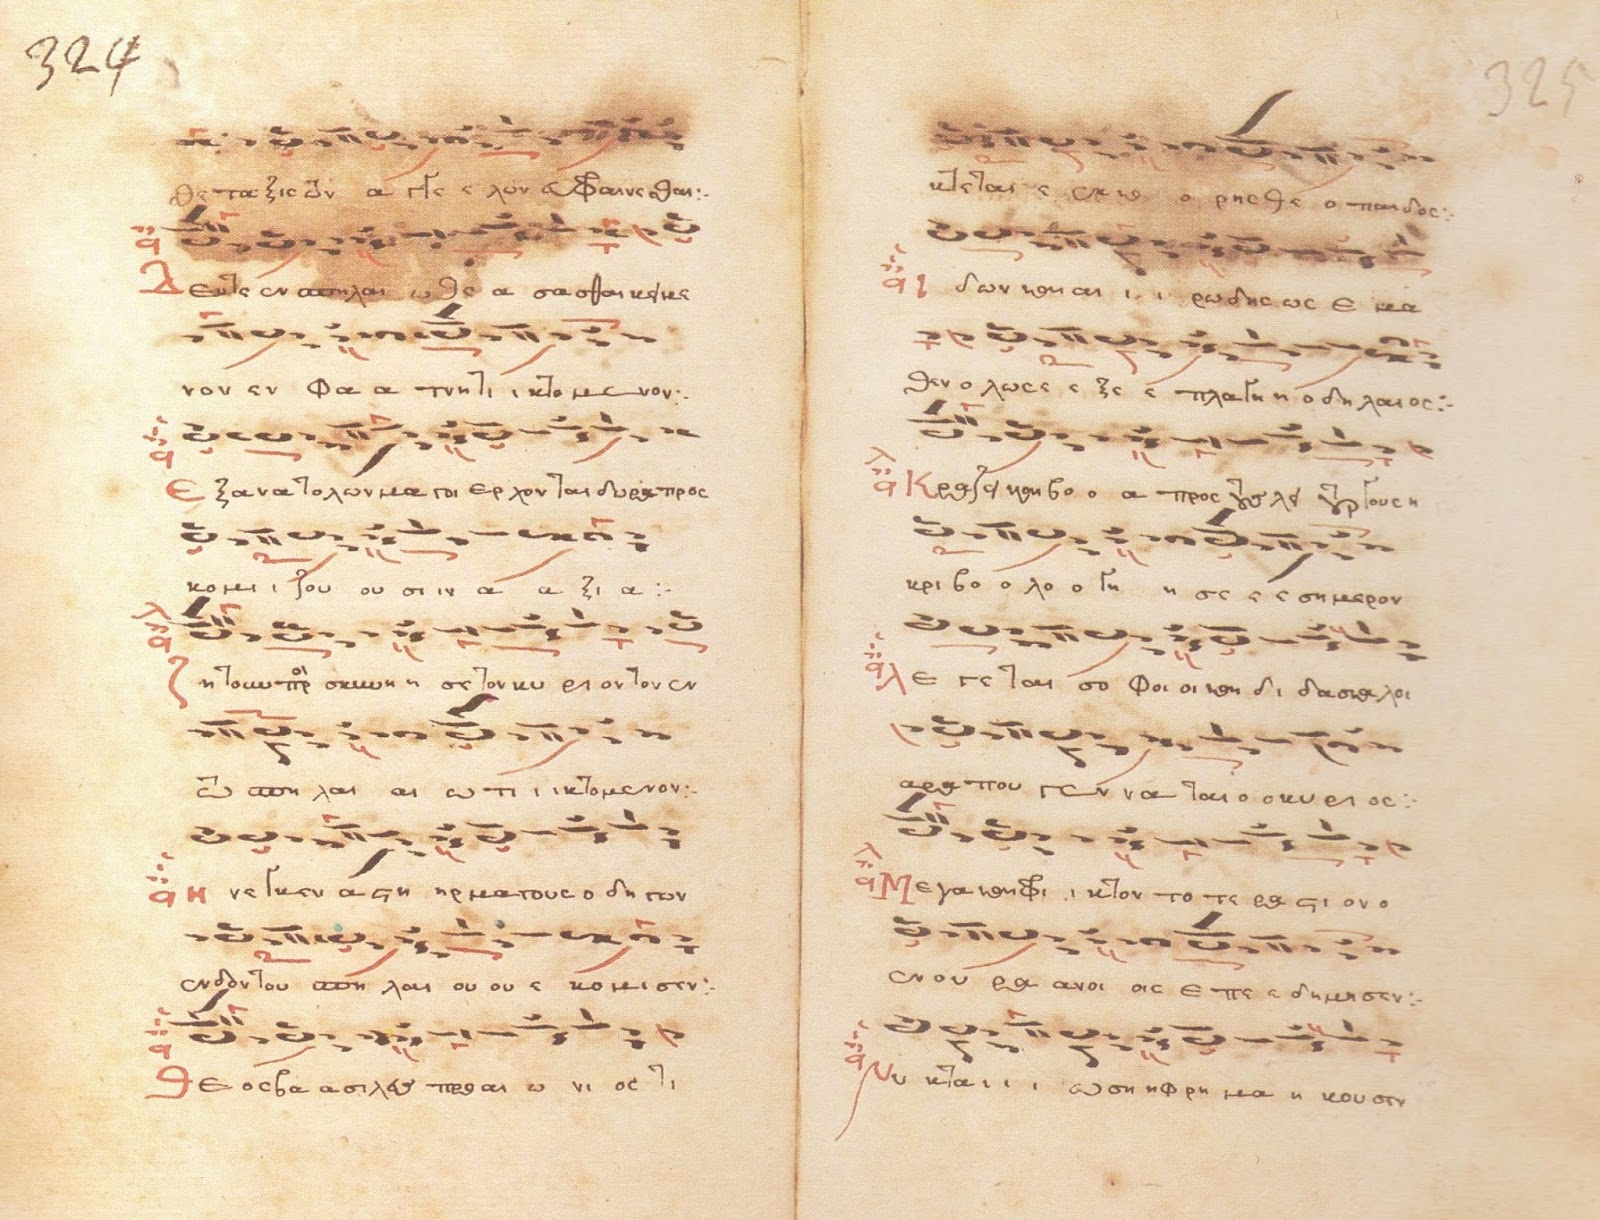 324
θε τάξις τῶν α γγε ε λων ὑμν φαινεσθαι:-
Δευτε εν σπηλαι ω θε α σασθαι κειμε
νον εν φα α τνη τι ι κτομενον:-
Εξ ανατολων μαγοι ερχονται δωρα προς
κομι ι ζου ου σι ιν α α ξι α:-
Ζητω ση η σε τον κυ ριον τον εν
τω σπη λαι αι ω τι ι ικτομενον:-
Ηνεγκεν αστη ηρ μαγους οδηγων
ενδον του σπη λαι ου ου ε κομισεν:-
Θεος βα ασιλευ πραι ω νι ος τι
325
κτεται ε εκ κο ο ρης θε ο παιδος:-
Ιδων και αι ι ι ρωδης ως ε μα
θεν ολως ε ε ξε ε πλαγη η ο δηλαιος:-
Κραζει και βο ο α προς τους
κριβο ο λο ο γη η σε ε ε σημερον
Λε γεται σο φοι οι και δι δασκαλοι
αρα που γεν να ται ο ο κυ ρι ος:-
Μεγα και φρι ι κτον το τε ρα στι ον ο
εν ου ρα ανοι οις ε πε ε δημησεν:-
Νυ κτα ι ι ι ωσηηφ ρημα η κουσεν